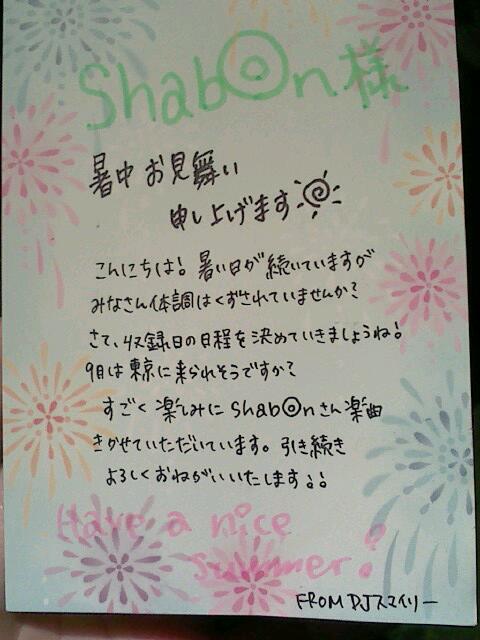 Shab◎n様
暑中お見舞い
申し上げます
こんにちは!暑い日が続いていますが
みなさん体調はくずされていませんか?
さて、収録日の日程を決めていきましょうね!
9月は東京に来られそうですか?
すごく楽しみにShab◎nさん楽曲
きかせていただいています。引き続き
よろしくおねがいいたします!!
Have a nice
summer!
FROM DJスマイリー